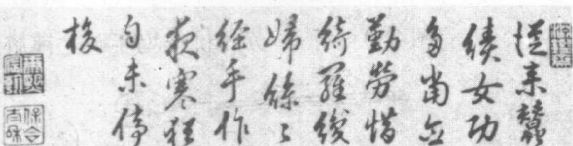 從來蠶
績女功
多當念
勤勞惜
綺羅織
婦絲〻
經手作
夜寒猶
自未停
梭
保合太和